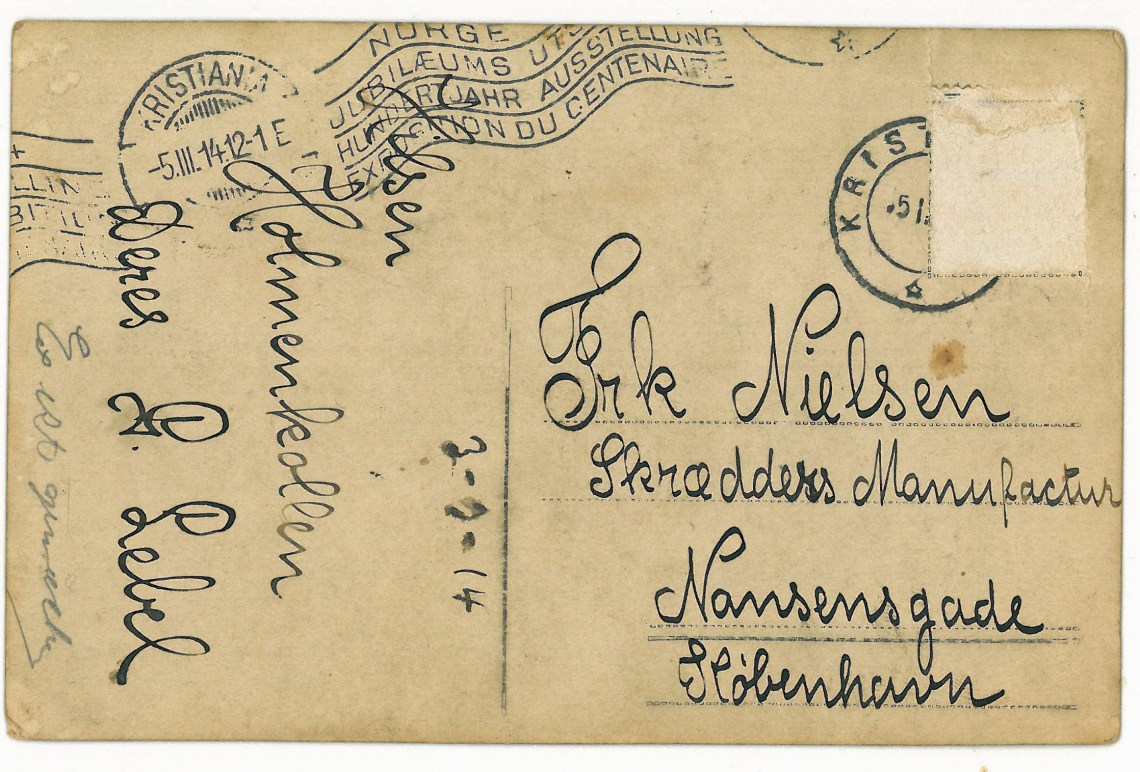 NORGE
JUBILÆUMS UTS
HUNDERTJAHR AUSSTELLUNG
EXPOSITION DU CENTENAIRE
KRISTIANIA
-5.III.14.12-1 E
KRIST
5 I
LLIN
Holmenkollen
Deres A. P. Lebel
3-3-14
Frk Nielsen
Skrædders Manufactur
Nansensgade
København